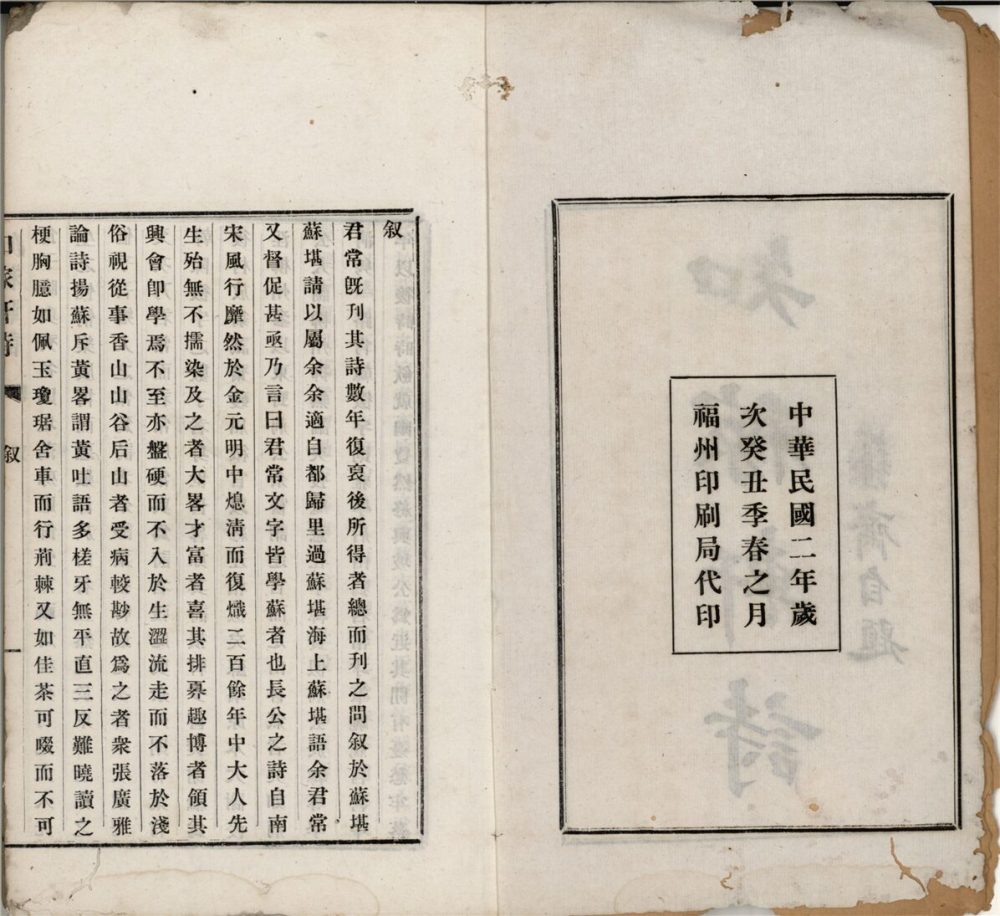 中華民國二年歲
次癸丑季春之月
福州印刷局代印
叙
君常既刊其詩數年復裒後所得者總而刊之問叙於蘇堪
蘇堪請以屬余余適自都歸里過蘇堪海上蘇堪語余君常
又督促甚亟乃言曰君常文字皆學蘇者也長公之詩自南
宋風行靡然於金元明中熄淸而復熾二百餘年中大人先
生殆無不擩染及之者大畧才富者喜其排奡趣博者領其
興會卽學焉不至亦盤硬而不入於生澀流走而不落於淺
俗視從事香山山谷后山者受病較尠故爲之者衆張廣雅
論詩揚蘇斥黃畧謂黃吐語多槎牙無平直三反難曉讀之
梗胸臆如佩玉瓊琚舍車而行荊棘又如佳茶可啜而不可
叙
一